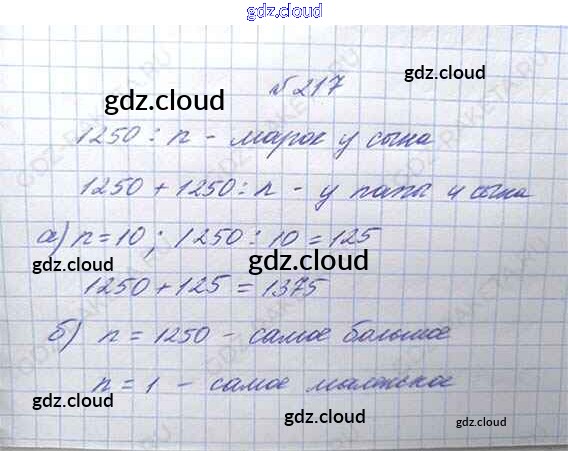 gdz.cloud
№ 217
gdz.cloud
gdz.cloud
1250 : n - марок у сына
1250 + 1250 : n - у папы и сына
а) n = 10 ; 1250 : 10 = 125
gdz.cloud
gdz.cloud
1250 + 125 = 1375
б) n = 1250 - самое большое
n = 1 - самое маленькое
gdz.cloud
gdz.cloud
gdz.cloud